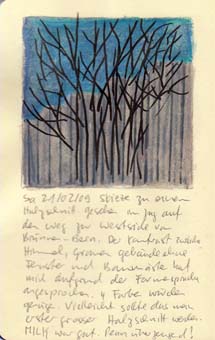 Sa 21/02/09 Skizze zu einem
Holzschnitt gesehen im Zug auf
dem Weg zur Westside von
Brünnen - Bern. Der Kontrast zwischen
Himmel, Gebäude ohne
Fenster und Baumäste hat
mich aufgrund der Formensprache
angesprochen. 4 Farben würden
genügen. Vielleicht sollte das mein
erster grosser Holzschnitt werden.
MILK war gut. Penn überzeugend!